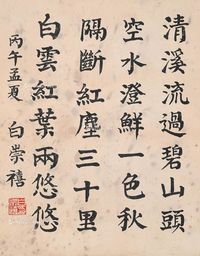 清溪流過碧山頭
空水澄鮮一色秋
隔斷紅塵三十里
白雲紅葉兩悠悠
丙午孟夏 白崇禧